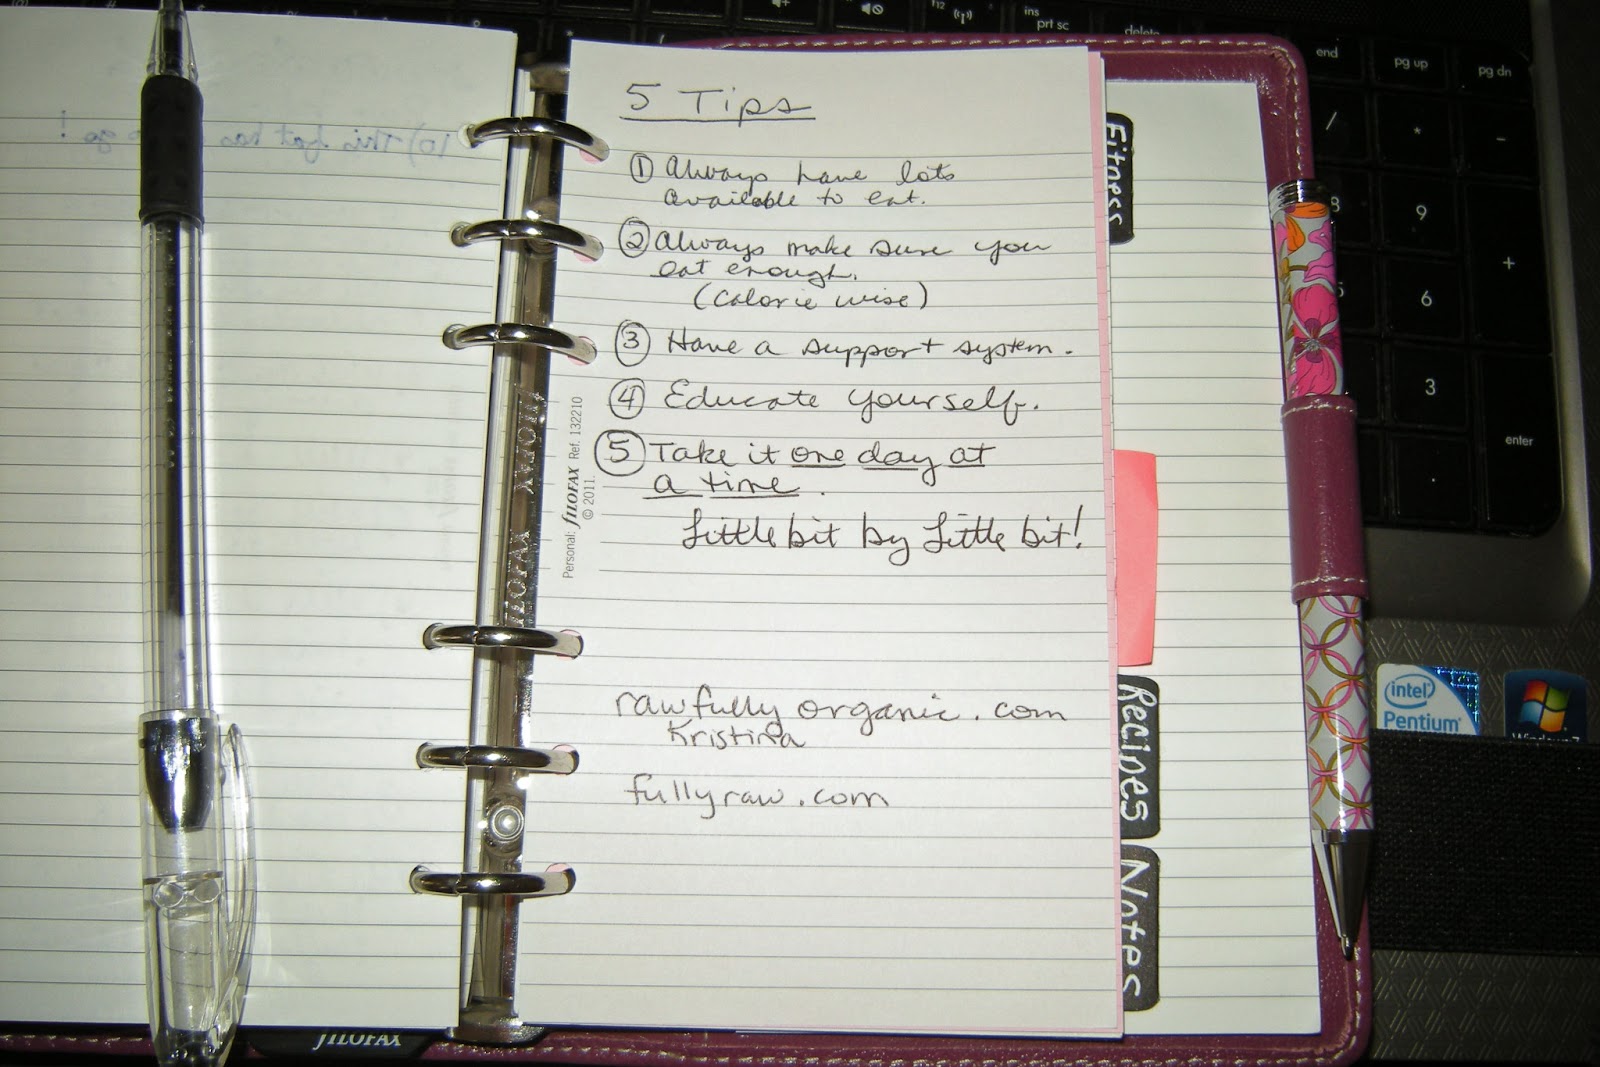 5 Tips
① Always have lots
available to eat.
② Always make sure you
eat enough.
(calorie wise)
③ Have a support system.
④ Educate yourself.
⑤ Take it one day at
a time.
Little bit by Little bit!
rawfully organic.com
Kristina
fullyraw.com
Personal: fILOFAX Ref. 132210
© 2011.
FILOFAX
FILOFAX
fILOFAX
10) This fat has to go!
Fitness
Recipes
Notes
f12
ins
prt sc
delete
end
pg up
pg dn
/
*
-
8
9
+
5
6
3
enter
intel
Pentium
Windows 7